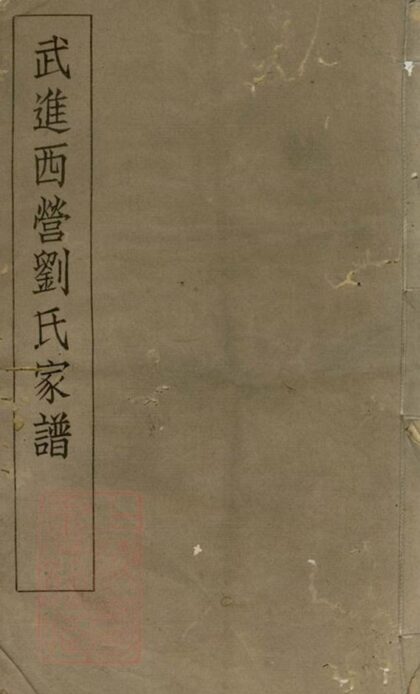 武進西營劉氏家譜